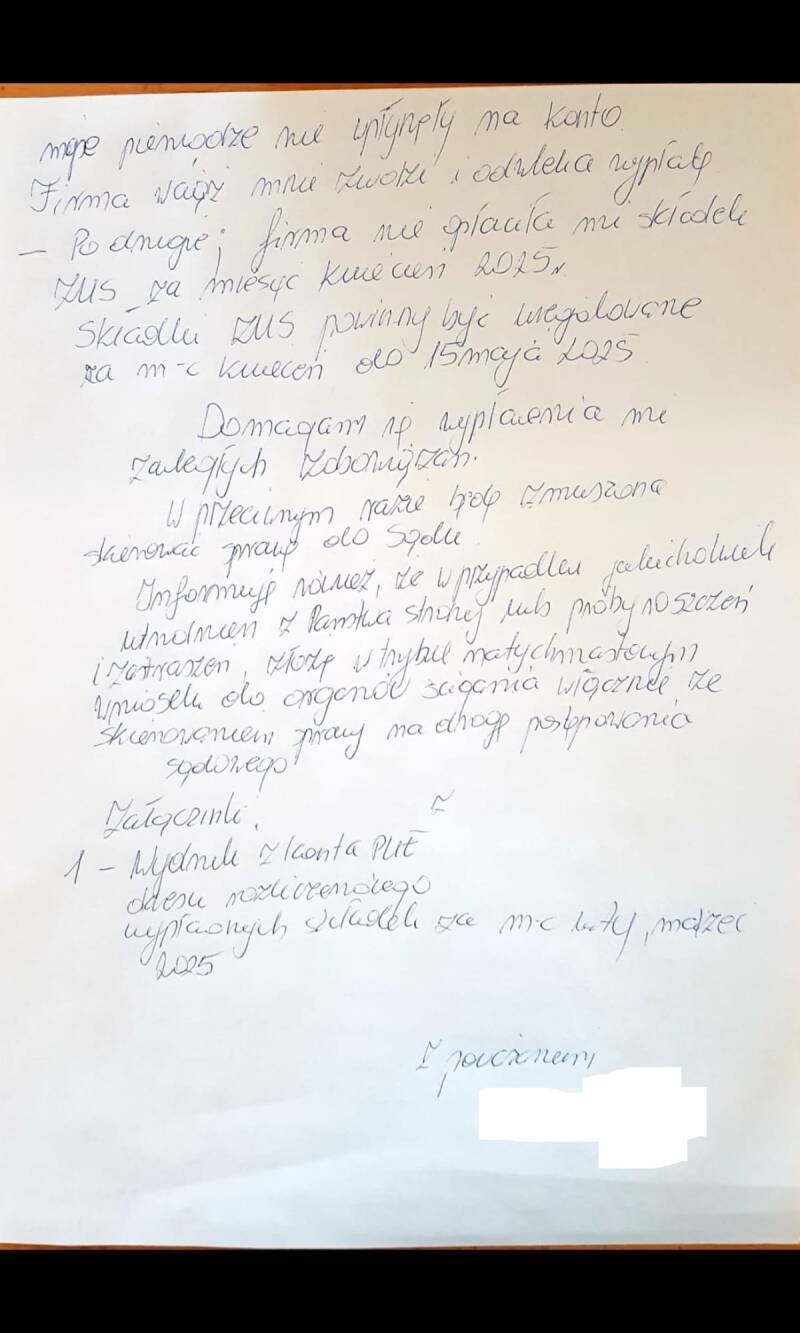 moje pieniądze nie wpłynęły na konto.
Firma wciąż mnie zwodzi i odwleka wypłatę
– Po drugie; firma nie opłaciła mi składek
ZUS za miesiąc kwiecień 2025r.
Składki ZUS powinny być uregulowane
za m-c kwiecień do 15 maja 2025
Domagam się wypłacenia mi
zaległych zobowiązań.
W przeciwnym razie będę zmuszona
skierować sprawę do Sądu
Informuję również, że w przypadku jakichkolwiek
utrudnień z Państwa strony lub próby roszczeń
i zastraszeń, złożę w trybie natychmiastowym
wniosek do organów ścigania włącznie ze
skierowaniem sprawy na drogę postępowania
sądowego
Załączniki. Z
1 – Wydruk z konta PUE
okresu rozliczeniowego
wypłaconych składek za m-c luty, marzec
2025
Z poważaniem